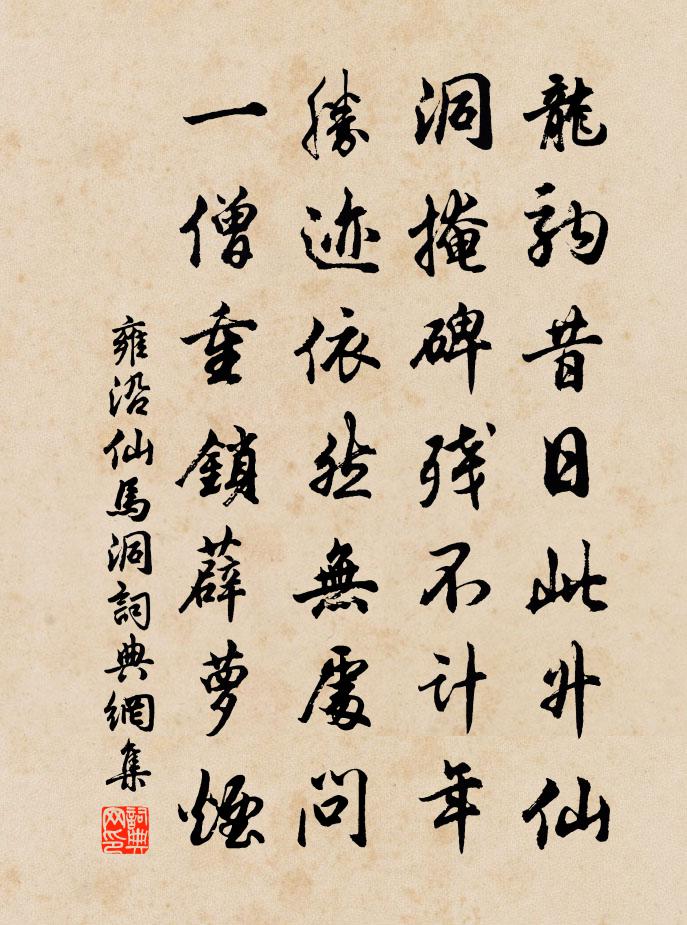 龍駒昔日此升仙
洞掩碑残不計年
勝迹依然無處問
一僧重鎖薜萝煙
雍沿仙馬洞詞典網集
詞典网印